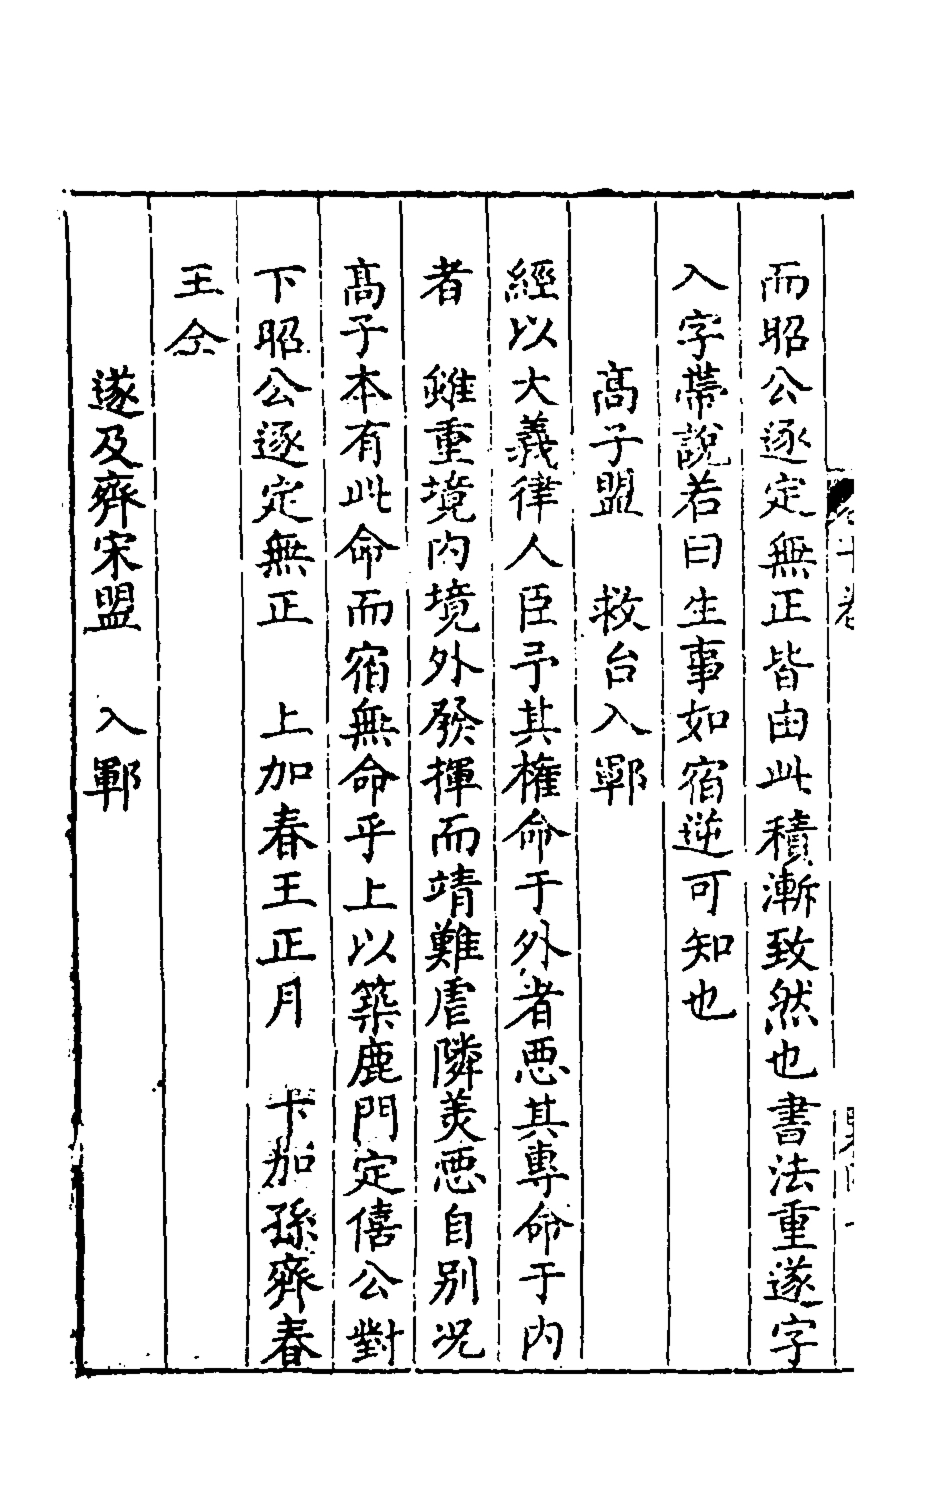 而昭公逐定無正皆由此積漸致然也書法重遂字
入字帶說若曰生事如宿逆可知也
高子盟　救台入鄆
經以大義律人臣予其權命于外者惡其專命于內
者　雖重境內境外發揮而靖難虐隣美惡自別况
髙子本有此命而宿無命乎上以築鹿門定僖公對
下昭公逐定無正　上加春王正月　下加孫齊春
王仌
遂及齊宋盟　入鄆